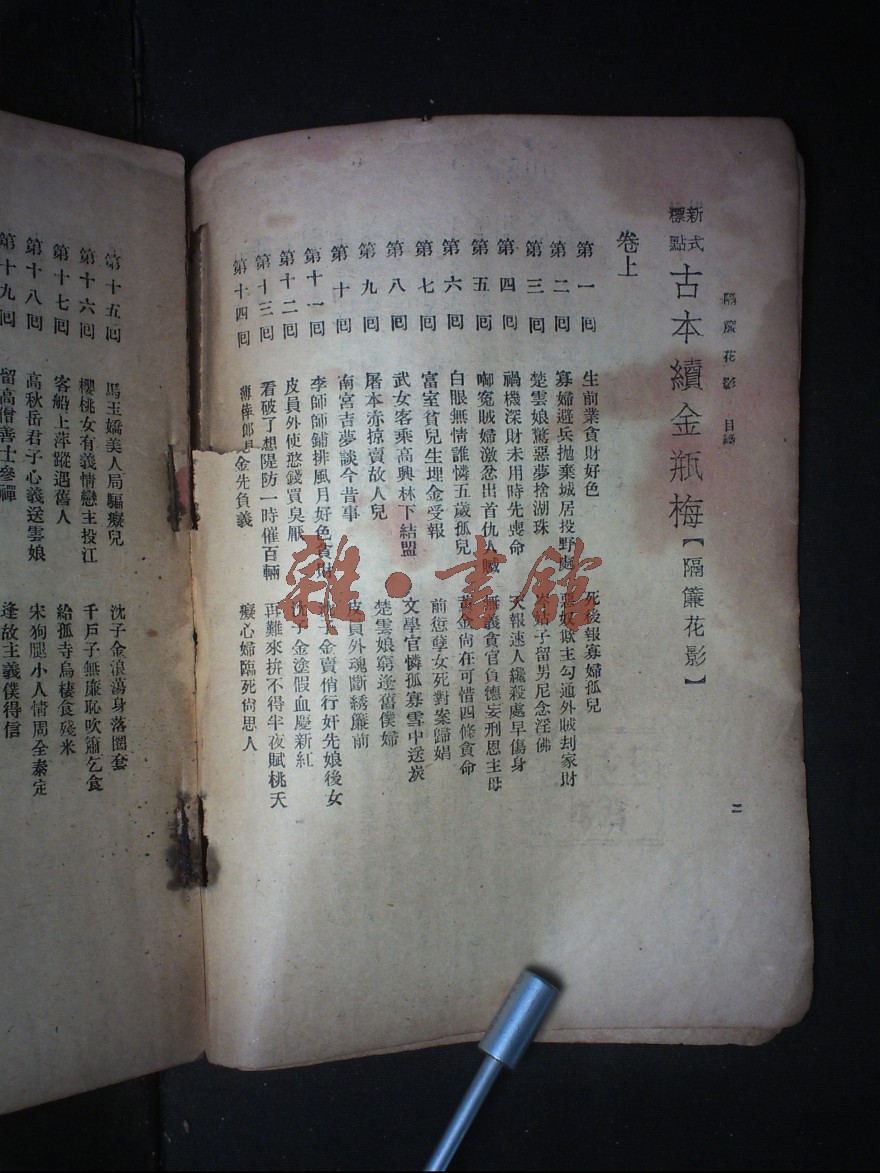 隔簾花影 目錄
二
新式標點 古本續金瓶梅【隔簾花影】
卷上
第一回 生前業貪財好色 死後報寡婦孤兒
第二回 寡婦避兵拋棄城居投野處 惡奴欺主勾通外賊刦家財
第三回 楚雲娘驚惡夢捨湖珠 姑子留男尼念淫佛
第四回 禍機深財未用時先喪命 天報速人纔殺處早傷身
第五回 啣冤賊婦激忿出首仇人贓 無義貪官負德妄刑恩主母
第六回 白眼無情誰憐五歲孤兒 黃金尚在可惜四條貪命
第七回 富室貧兒生埋金受報 前愆孽女死對案歸娼
第八回 武女客乘高興林下結盟 文學官憐孤寡雪中送炭
第九回 屠本赤掠賣故人兒 楚雲娘窮逢舊僕婦
第十回 南宮吉夢談今昔事 皮員外魂斷綉簾前
第十一回 李師師鋪排風月好色貪財 沈子金賣俏行奸先娘後女
第十二回 皮員外使憨錢買臭厭 沈子金塗假血慶新紅
第十三回 看破了想隄防一時催百輛 再難來拚不得半夜賦桃夭
第十四回 薄倖郎見金先負義 癡心婦臨死尙思人
第十五回 馬玉嬌美人局騙癡兒 沈子金浪蕩身落圈套
第十六回 櫻桃女有義情戀主投江 千戶子無廉恥吹簫乞食
第十七回 客船上萍蹤遇舊人 給孤寺烏棲食殘米
第十八回 高秋岳君子心義送雲娘 宋狗腿小人情周全泰定
第十九回 留高僧善士參禪 逢故主義僕得信
雜·書館